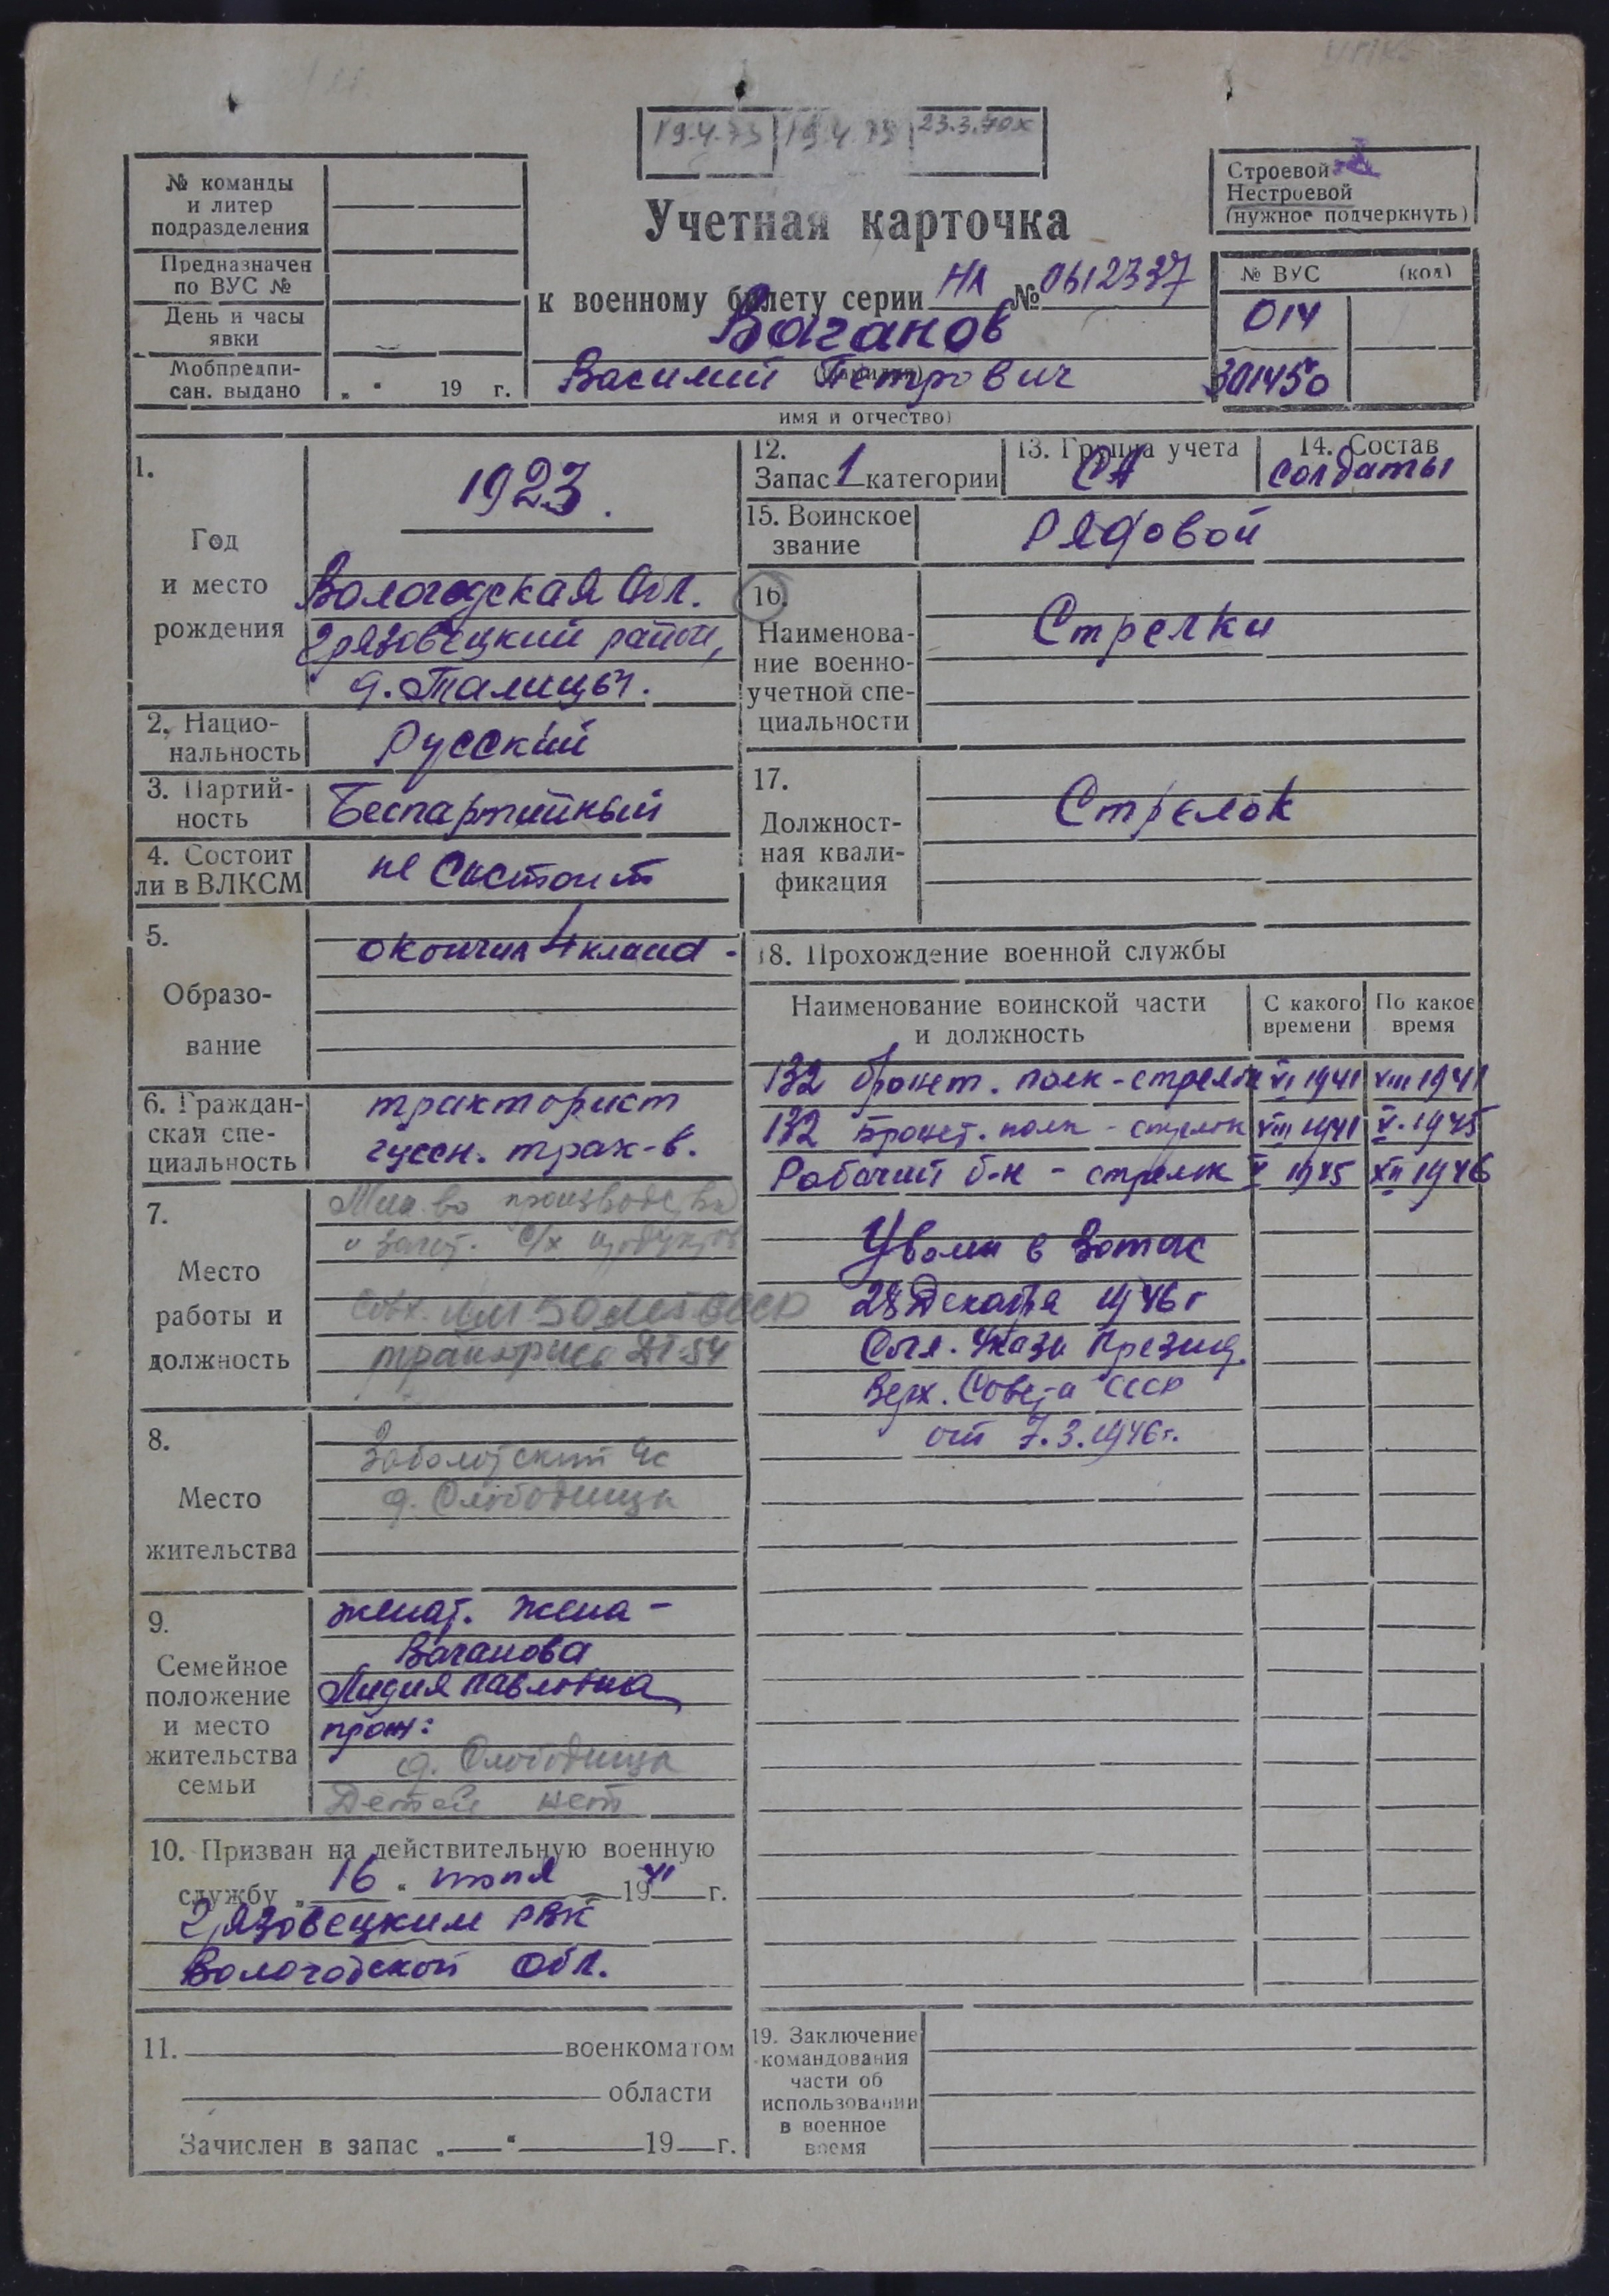 19.4.73 19.4.75 23.3.70х
№ команды
и литер
подразделения
Предназначен
по ВУС №
День и часы
явки
Мобпредпи-
сан. выдано „ “ 19 г.
Учетная карточка
к военному билету серии НЛ № 0612337
Ваганов
(фамилия)
Василий Петрович
имя и отчество)
Строевой
Нестроевой
(нужное подчеркнуть)
№ ВУС (код)
014
301450
1.
Год
и место
рождения
1923.
Вологодская обл.
Грязовецкий район,
д. Талицы.
2. Нацио-
нальность
Русский
3. Партий-
ность
Беспартийный
4. Состоит
ли в ВЛКСМ
не Состоит
5.
Образо-
вание
окончил 4 класса
6. Граждан-
ская спе-
циальность
тракторист
гусен. трак-в.
7.
Место
работы и
должность
Мин-во производства
и загот. с/х продуктов
совх. им 50 лет СССР
тракторист ДТ-54
8.
Место
жительства
Заболотский с/с
д. Слободища
9.
Семейное
положение
и место
жительства
семьи
женат. жена -
Ваганова
Лидия Павловна
прож:
д. Слободища
Детей нет
10. Призван на действительную военную
службу „16“ июня 1941 г.
Грязовецким РВК
Вологодской обл.
11. военкоматом
области
Зачислен в запас „ “ 19 г.
12.
Запас 1 категории
13. Группа учета
СА
14. Состав
солдаты
15. Воинское
звание
Рядовой
16.
Наименова-
ние военно-
учетной спе-
циальности
Стрелки
17.
Должност-
ная квали-
фикация
Стрелок
18. Прохождение военной службы
Наименование воинской части
и должность
С какого
времени
По какое
время
132 бронет. полк - стрелок VI 1941 VIII 1941
132 Бронет. полк - стрелок VIII 1941 V. 1945
Рабочий б-н - стрелок V 1945 XII 1946
Уволен в Запас
28 Декабря 1946 г
Согл. Указа Презид.
Верх. Совета СССР
от 7.3.1946г.
19. Заключение
командования
части об
использовании
в военное
время